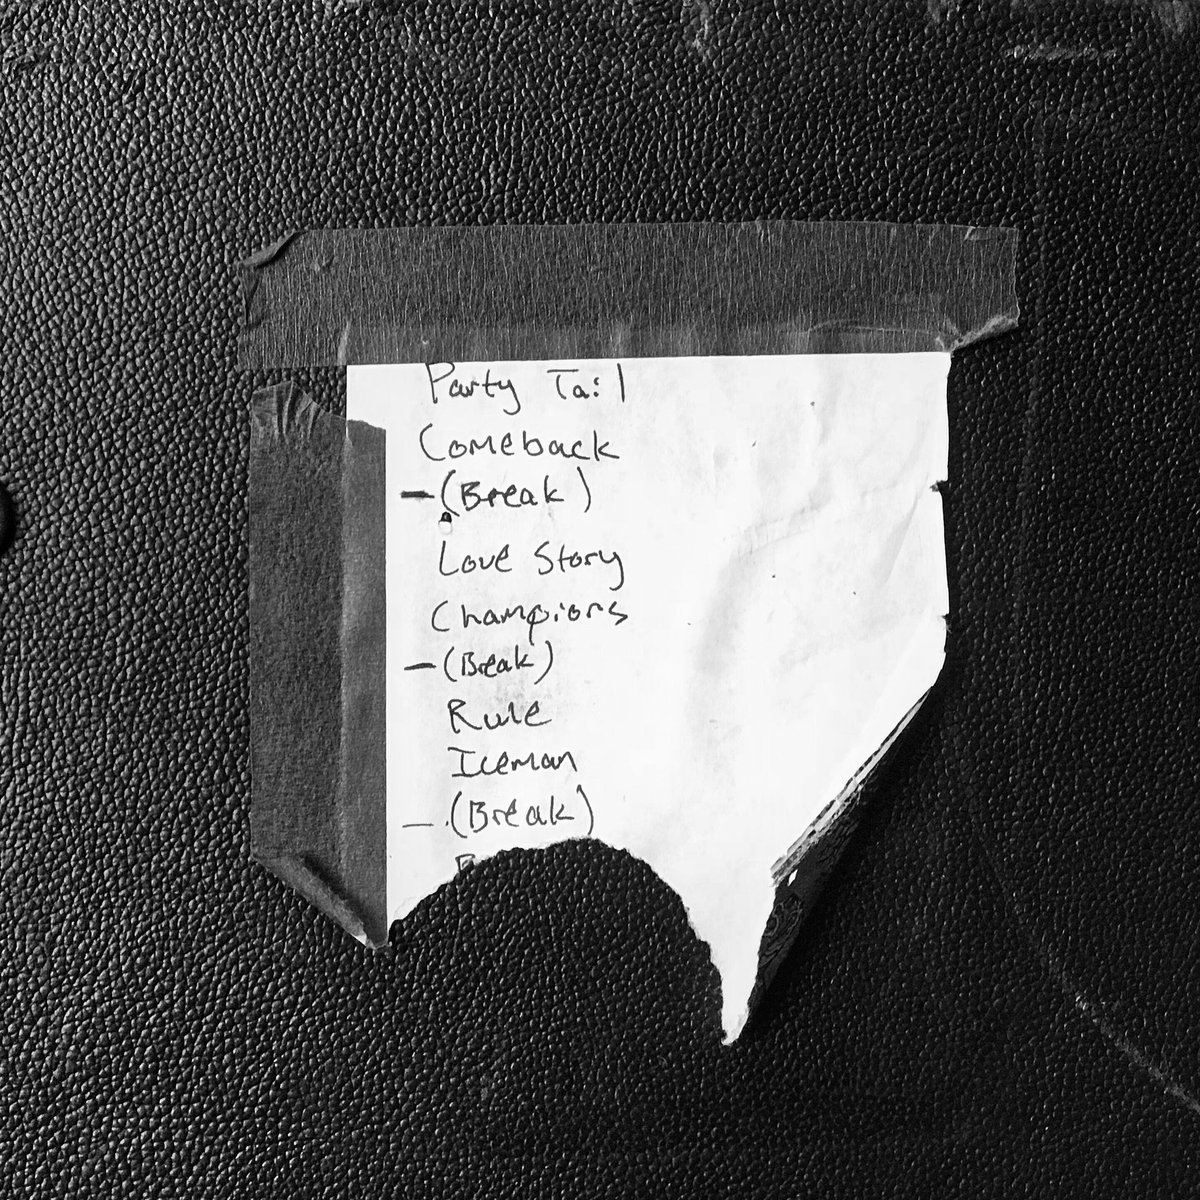 Party Tail
Comeback
— (Break)
Love Story
Champions
— (Break)
Rule
Iceman
— (Break)